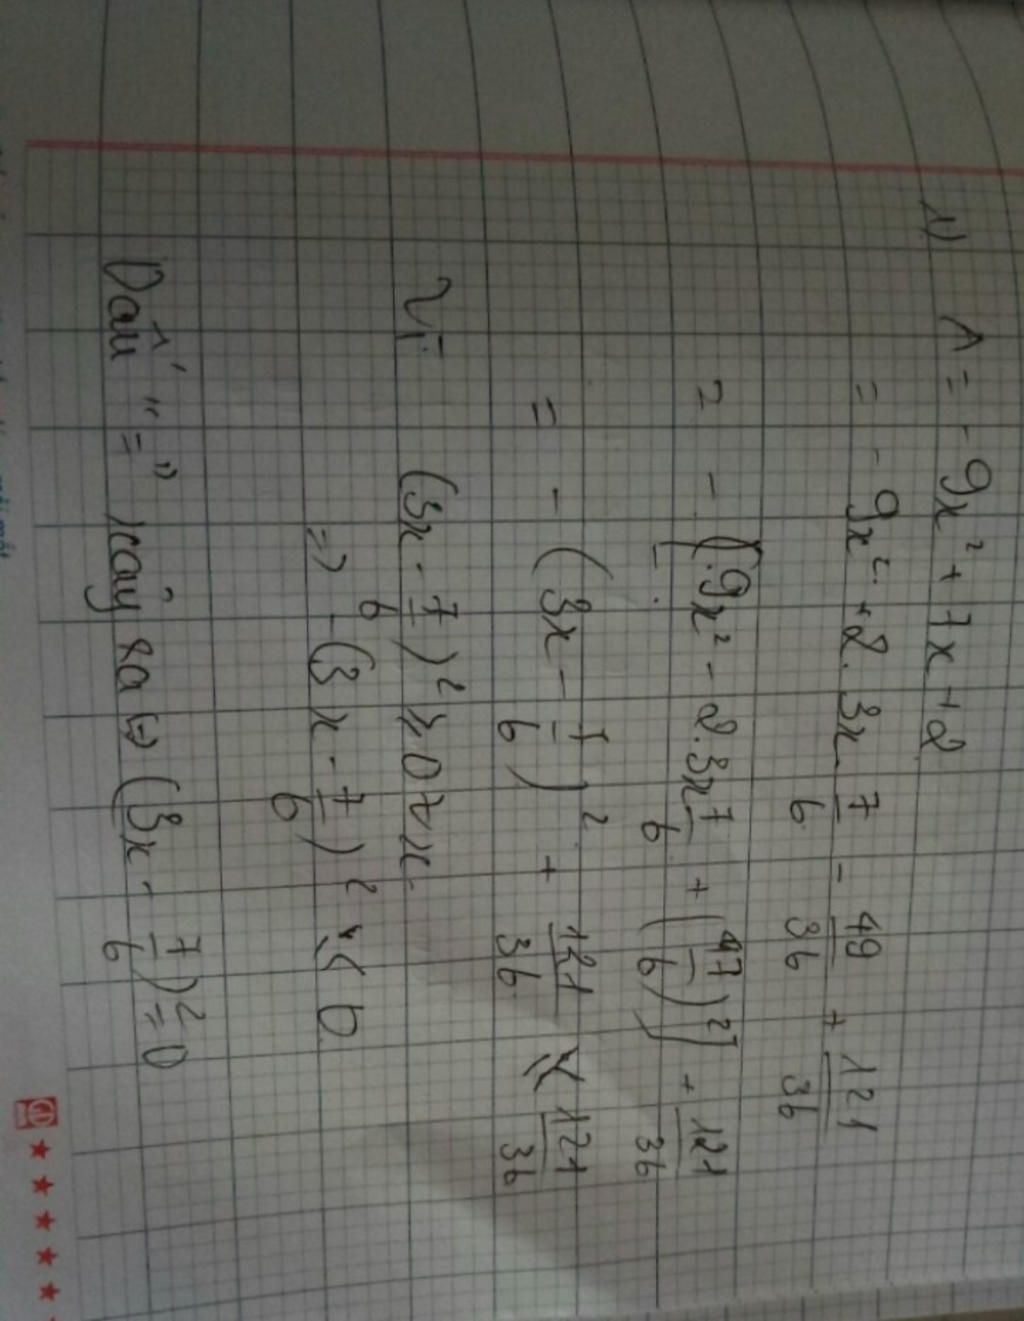 1) A = - 9x² + 7x + 2
= - 9x² + 2. 3x 7/6 - 49/36 + 121/36
= - [9x² - 2.3x 7/6 + (7/6)²] + 121/36
= - (3x - 7/6)² + 121/36 ≤ 121/36
Vì (3x - 7/6)² ≥ 0 ∀ x
=> - (3x - 7/6)² ≤ 0
Dấu "=" xảy ra <=> (3x - 7/6)² = 0